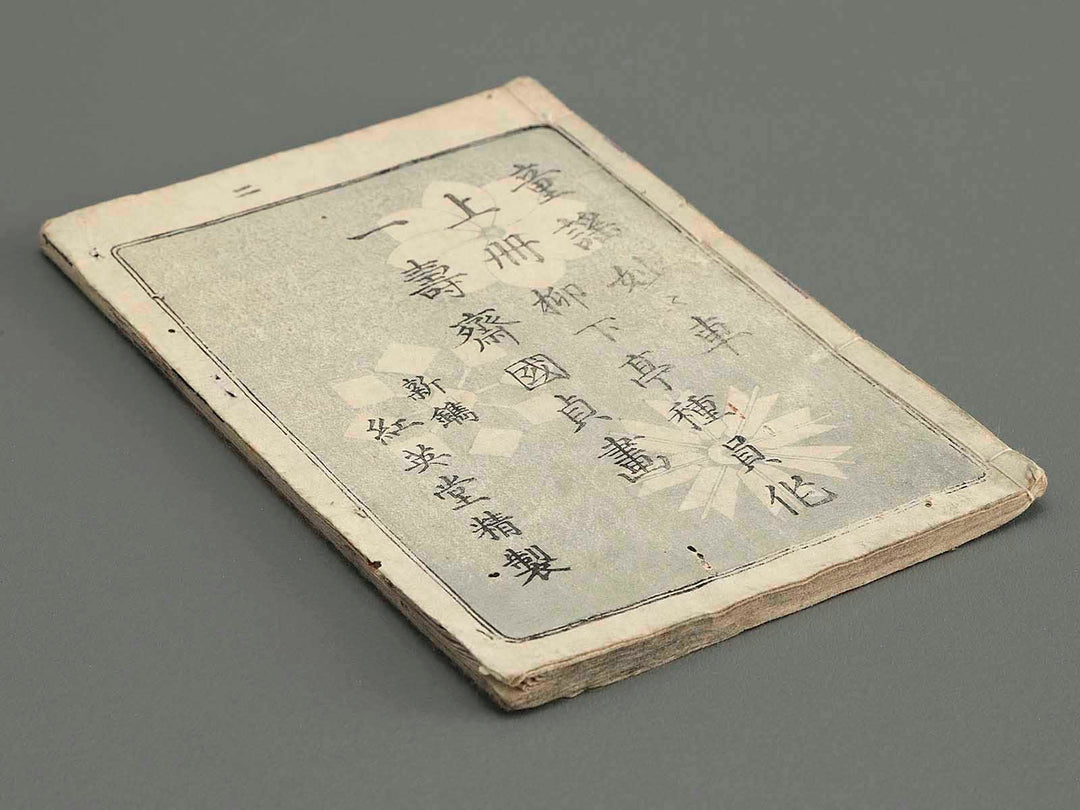 二
童謠妙〻車
上冊
柳下亭種員作
一壽齋國貞畫
新鐫
紅英堂精製